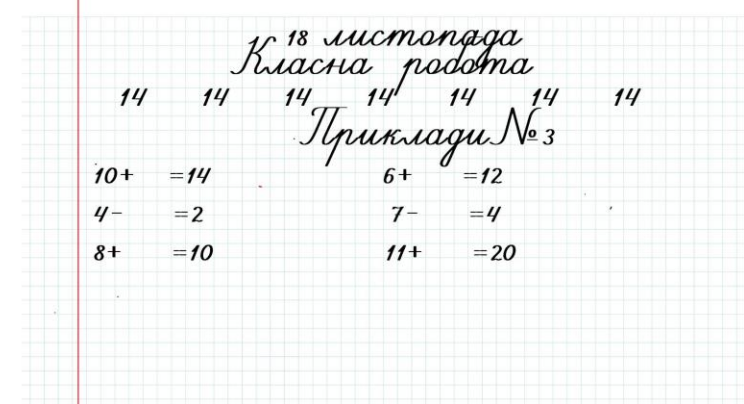 18 листопада
Класна робота
14 14 14 14 14 14 14
Приклади № 3
10+ =14 6+ =12
4- =2 7- =4
8+ =10 11+ =20